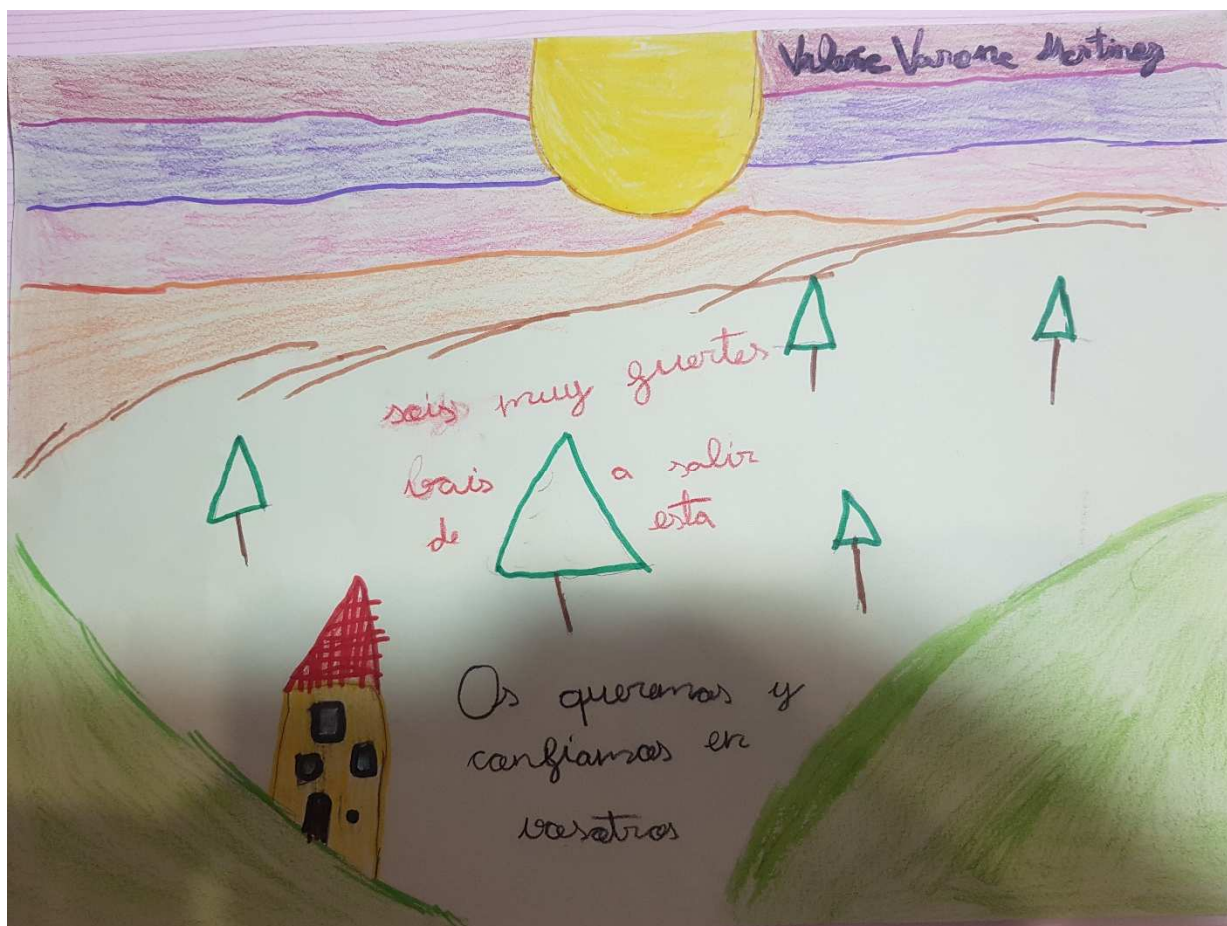 Valerie Varone Martinez
sois muy fuertes
bais a salir
de esta
Os queremos y
confiamos en
vosotros